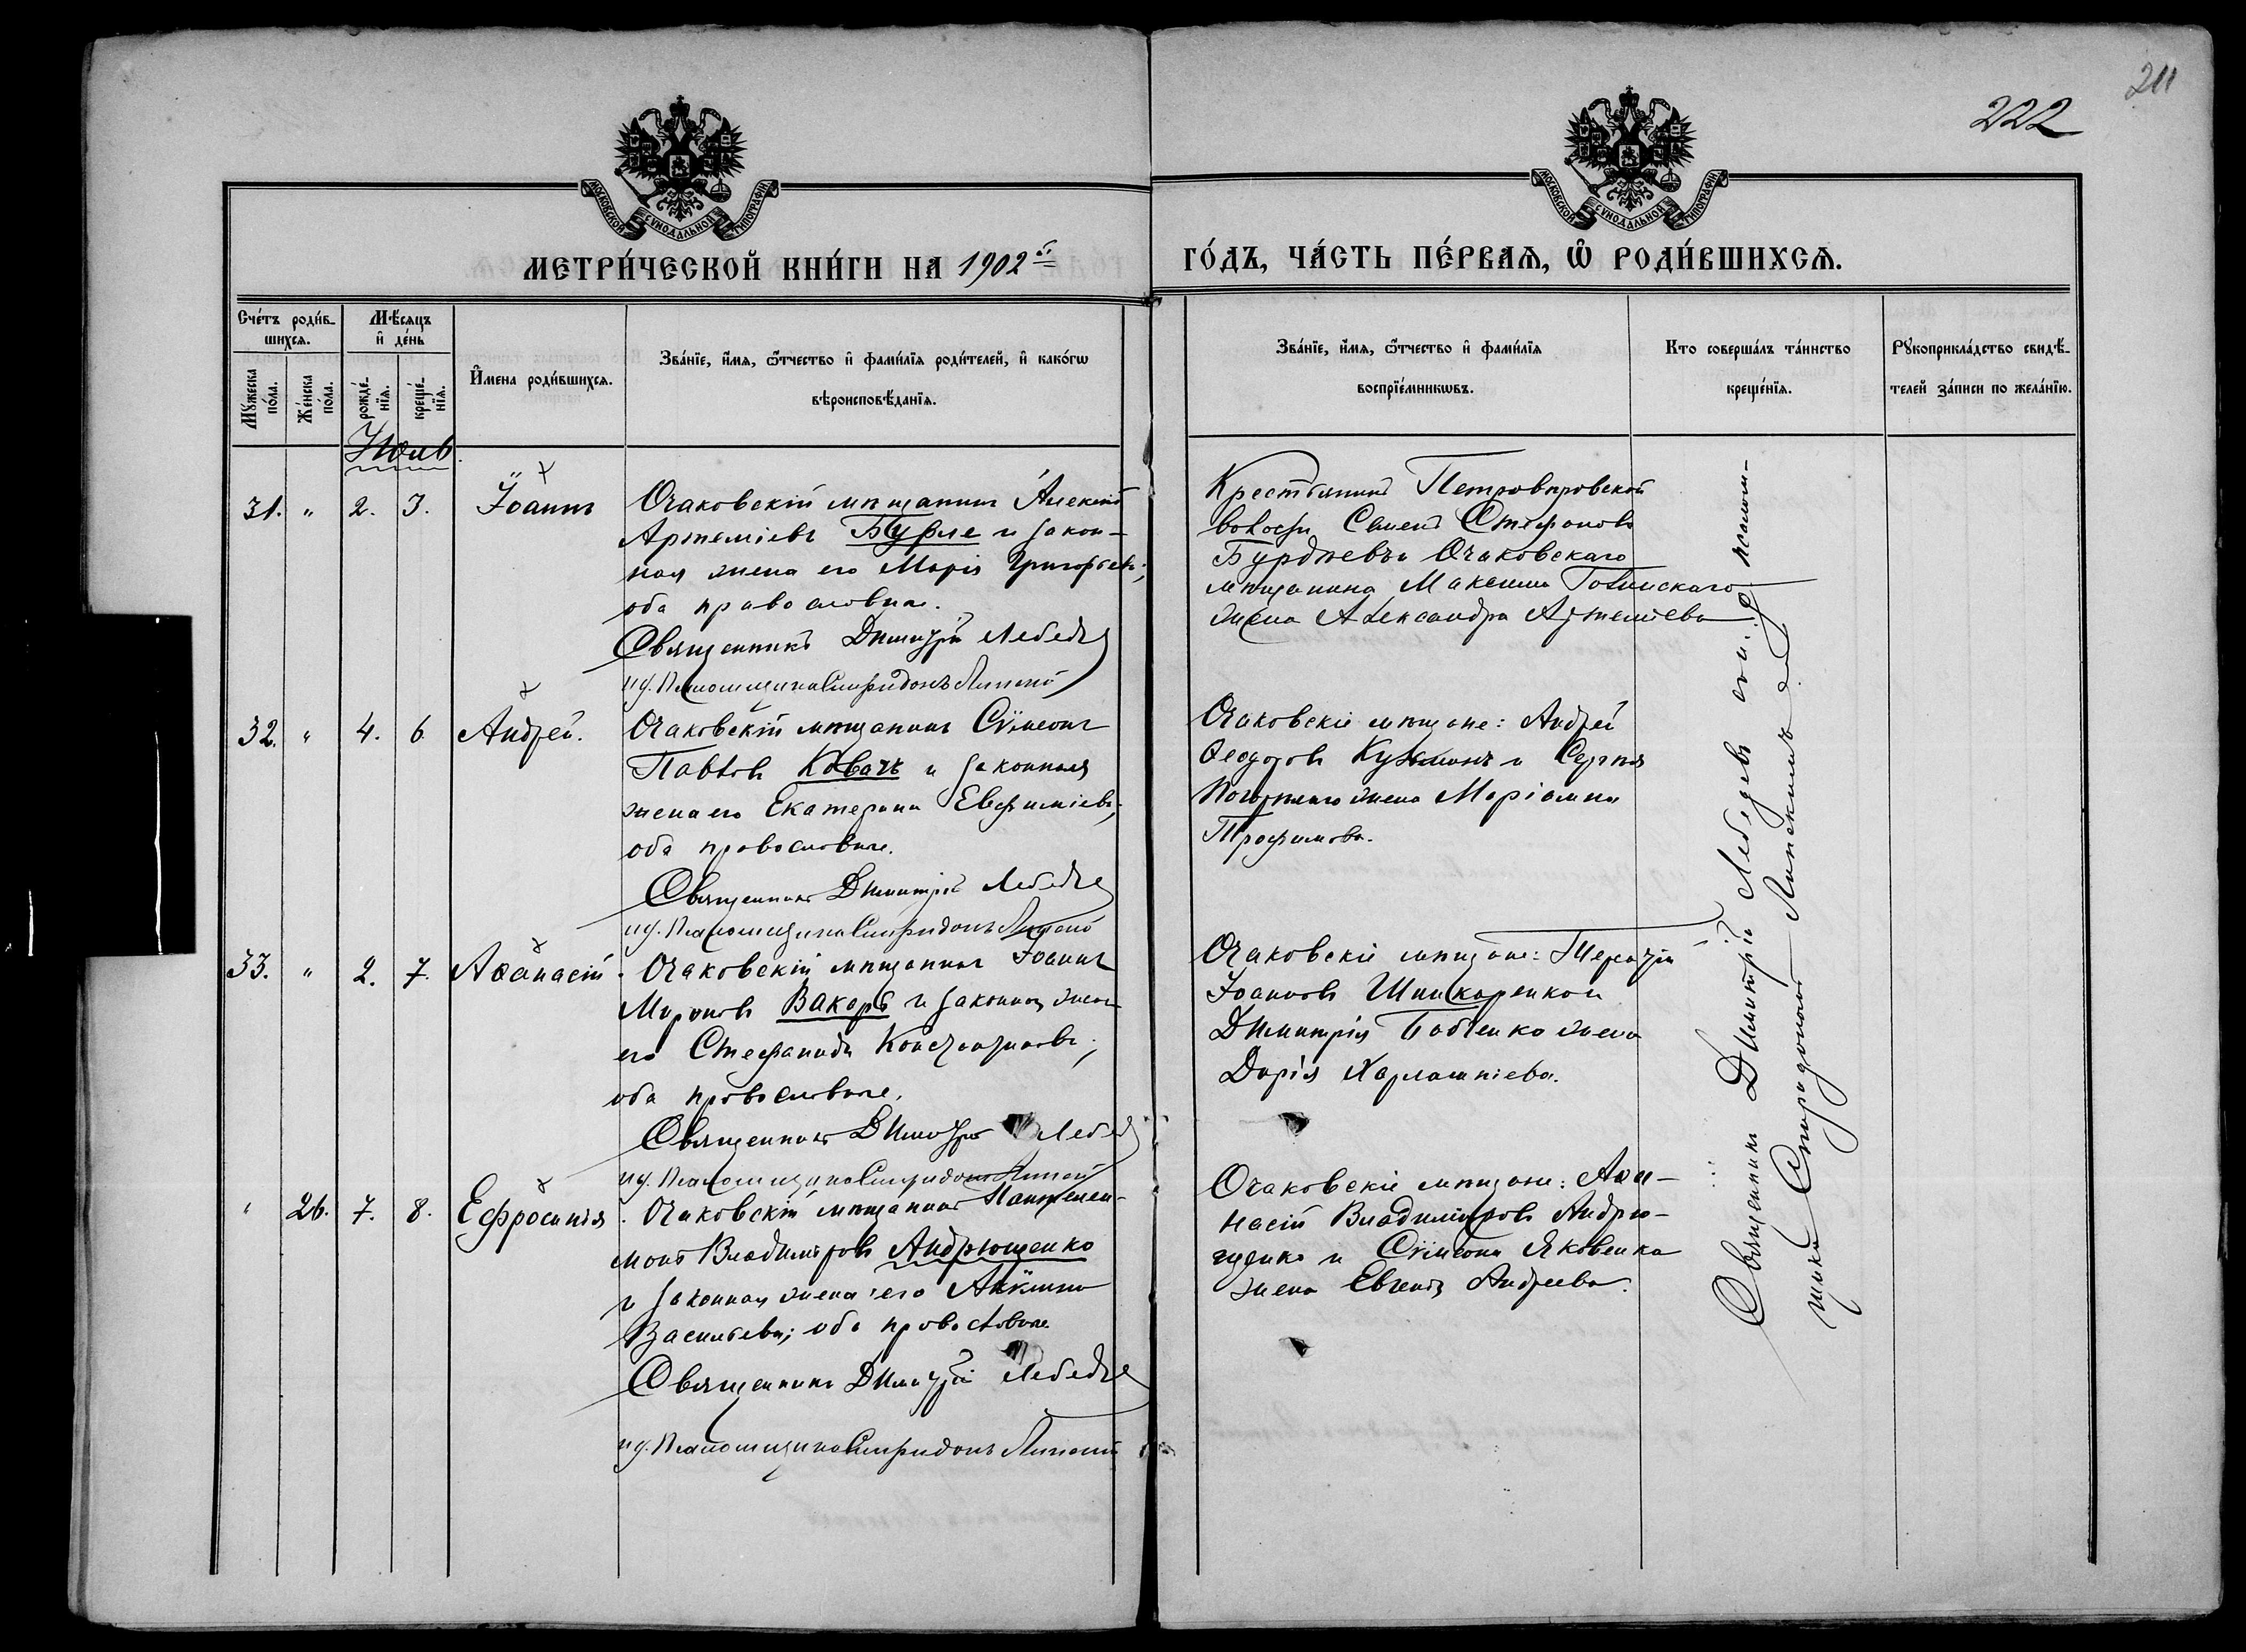 211
222
МОСКОВСКОЙ СѴНОДАЛЬНОЙ ТИПОГРАФІИ
МОСКОВСКОЙ СѴНОДАЛЬНОЙ ТИПОГРАФІИ
МЕТРИ́ЧЕСКОЙ КНИ́ГИ НА 1902й
ГО́ДЪ, ЧА́СТЬ ПЕ́РВАѦ, Ѡ҆ РОДИ́ВШИХСѦ.
Сче́тъ роди́в-
шихсѧ.
Мѣ́сѧцъ
и҆ де́нь
Мꙋ́жеска
по́ла.
Же́нска
по́ла.
рожде́-
нїѧ.
креще́-
нїѧ.
И҆мена роди́вшихсѧ.
Зва́нїе, и҆́мѧ, ѻ҆́тчество и҆ фами́лїѧ роди́телей, и҆ како́гѡ
вѣроисповѣ́данїѧ.
Зва́нїе, и҆́мѧ, ѻ҆́тчество и҆ фами́лїѧ
воспрїе́мникѡвъ.
Кто соверша́лъ та́инство
креще́нїѧ.
Рꙋкоприкла́дство свидѣ́-
телей за́писи по жела́нїю.
Июль.
31. " 2. 3. Іоаннъ
Очаковскій мѣщанинъ Алексій
Артеміевъ Буфле и закон-
ная жена его Марія Григорьева;
оба православные.
Священникъ Димитрій Лебедев
ид. Псаломщика Спиридонъ Липскій
Крестьянинъ Петровпровской
волости Семенъ Стефановъ
Бурдневъ и Очаковскаго
мѣщанина Максима
жена Александра Артеміева
32. " 4. 6. Андрей.
Очаковскій мѣщанинъ Сѵмеонъ
Павловъ Ковачъ и законная
жена его Екатерина Евфиміева;
оба православные.
Священникъ Димитрій Лебедев
ид. Псаломщика Спиридонъ Липскій
Очаковскіе мѣщане: Андрей
Ѳеодоровъ Кузьминъ и Сергѣя
жена Маріамна
Трофимова.
33. " 2. 7. Аѳанасій.
Очаковскій мѣщанинъ Іоаннъ
Мироновъ Вакаръ и законная жена
его Стефанида Константинова;
оба православные.
Священникъ Димитрій Лебедев
ид. Псаломщика Спиридонъ Липскій
Очаковскіе мѣщане: Терентій
Іоанновъ Шинкаренко и
Димитрія Бабенко жена
Дарія Харлампіева.
" 26. 7. 8. Ефросинія.
Очаковскій мѣщанинъ Пантелей-
монъ Владиміровъ Андрющенко
и законная жена его Акилина
Васильева; оба православные
Священникъ Димитрій Лебедев
ид. Псаломщика Спиридонъ Липскій
Очаковскіе мѣщане: Аѳа-
насій Владиміровъ Андрю-
щенко и Сѵмеона Яковенка
жена Евгенія Андреева.
Священникъ Димитрій Лебедевъ съ и. д. псалом-
щика Спиридономъ Липскимъ